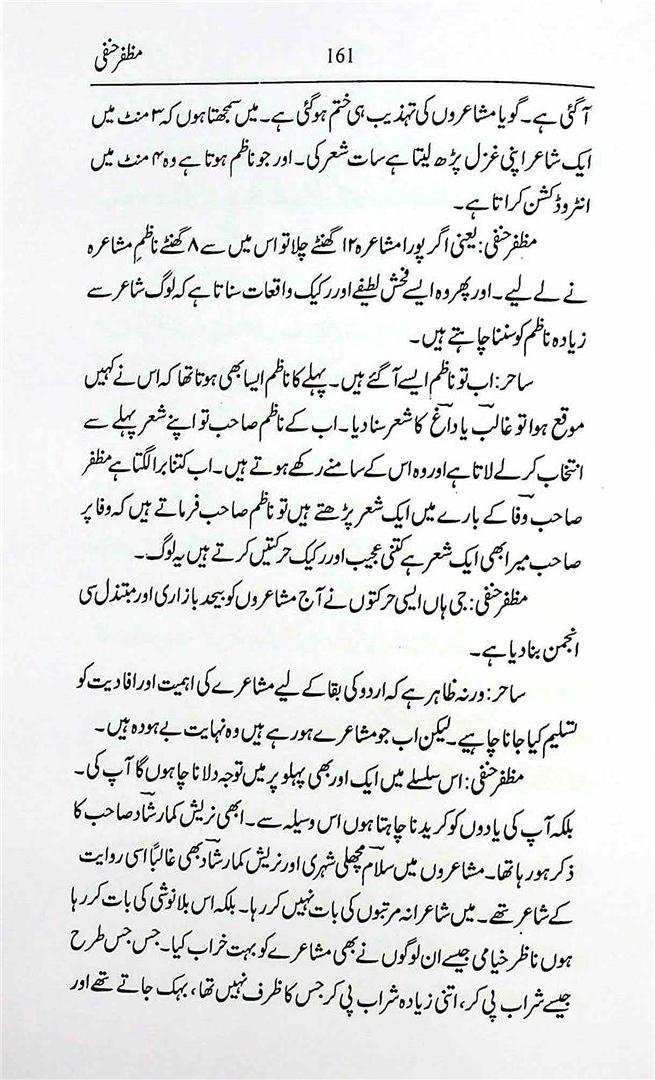 مظفر حنفی
161
آ گئی ہے۔ گویا مشاعروں کی تہذیب ہی ختم ہو گئی ہے۔ میں سمجھتا ہوں کہ ۳ منٹ میں
ایک شاعر اپنی غزل پڑھ لیتا ہے سات شعر کی۔ اور جو ناظم ہوتا ہے وہ ۴ منٹ میں
انٹروڈکشن کراتا ہے۔
مظفر حنفی: یعنی اگر پورا مشاعرہ ۱۲ گھنٹے چلا تو اس میں سے ۸ گھنٹے ناظمِ مشاعرہ
نے لے لیے۔ اور پھر وہ ایسے فحش لطیفے اور رکیک واقعات سناتا ہے کہ لوگ شاعر سے
زیادہ ناظم کو سننا چاہتے ہیں۔
ساحر: اب تو ناظم ایسے آ گئے ہیں۔ پہلے کا ناظم ایسا بھی ہوتا تھا کہ اس نے کہیں
موقع ہوا تو غالبؔ یا داغؔ کا شعر سنا دیا۔ اب کے ناظم صاحب تو اپنے شعر پہلے سے
انتخاب کر لے لاتا ہے اور وہ اس کے سامنے رکھے ہوتے ہیں۔ اب کتنا برا لگتا ہے مظفر
صاحب وفاؔ کے بارے میں ایک شعر پڑھتے ہیں تو ناظم صاحب فرماتے ہیں کہ وفا پر
صاحب میرا بھی ایک شعر ہے کتنی عجیب اور رکیک حرکتیں کرتے ہیں یہ لوگ۔
مظفر حنفی: جی ہاں ایسی حرکتوں نے آج مشاعروں کو بیحد بازاری اور مبتذل سی
انجمن بنا دیا ہے۔
ساحر: ورنہ ظاہر ہے کہ اردو کی بقا کے لیے مشاعرے کی اہمیت اور افادیت کو
تسلیم کیا جانا چاہیے۔ لیکن اب جو مشاعرے ہو رہے ہیں وہ نہایت بے ہودہ ہیں۔
مظفر حنفی: اس سلسلے میں ایک اور بھی پہلو پر میں توجہ دلانا چاہوں گا آپ کی۔
بلکہ آپ کی یادوں کو کریدنا چاہتا ہوں اس وسیلہ سے۔ ابھی نریش کمار شادؔ صاحب کا
ذکر ہو رہا تھا۔ مشاعروں میں سلامؔ مچھلی شہری اور نریش کمار شادؔ بھی غالباً اسی روایت
کے شاعر تھے۔ میں شاعرانہ مرتبوں کی بات نہیں کر رہا۔ بلکہ اس بلا نوشی کی بات کر رہا
ہوں ناظر خیامی جیسے ان لوگوں نے بھی مشاعرے کو بہت خراب کیا۔ جس جس طرح
جیسے شراب پی کر، اتنی زیادہ شراب پی کر جس کا ظرف نہیں تھا، بہک جاتے تھے اور